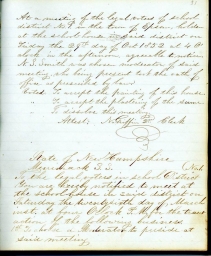 At a meeting of the legal voters of school
district No 9 in the town of
at the school house in said district on
Friday the 29th day of Oct 1852 at 4 O
clock in the afternoon agreeable to warning
N. J. Smith was chosen moderator of said
meeting who being present took the oath of
office as prescribed by law
Voted To accept the painting of this house
" To accept the plastering of the same
" To dissolve this meeting
Attest, Clerk
State of New Hampshire
S.S.
To the legal voters in school District
You are hereby notified to meet at
the school house in said district on
Saturday the twentieth day of March
next at four Oclock P.M. for the
of the following business
1st To choose a Moderator to preside at
said meeting